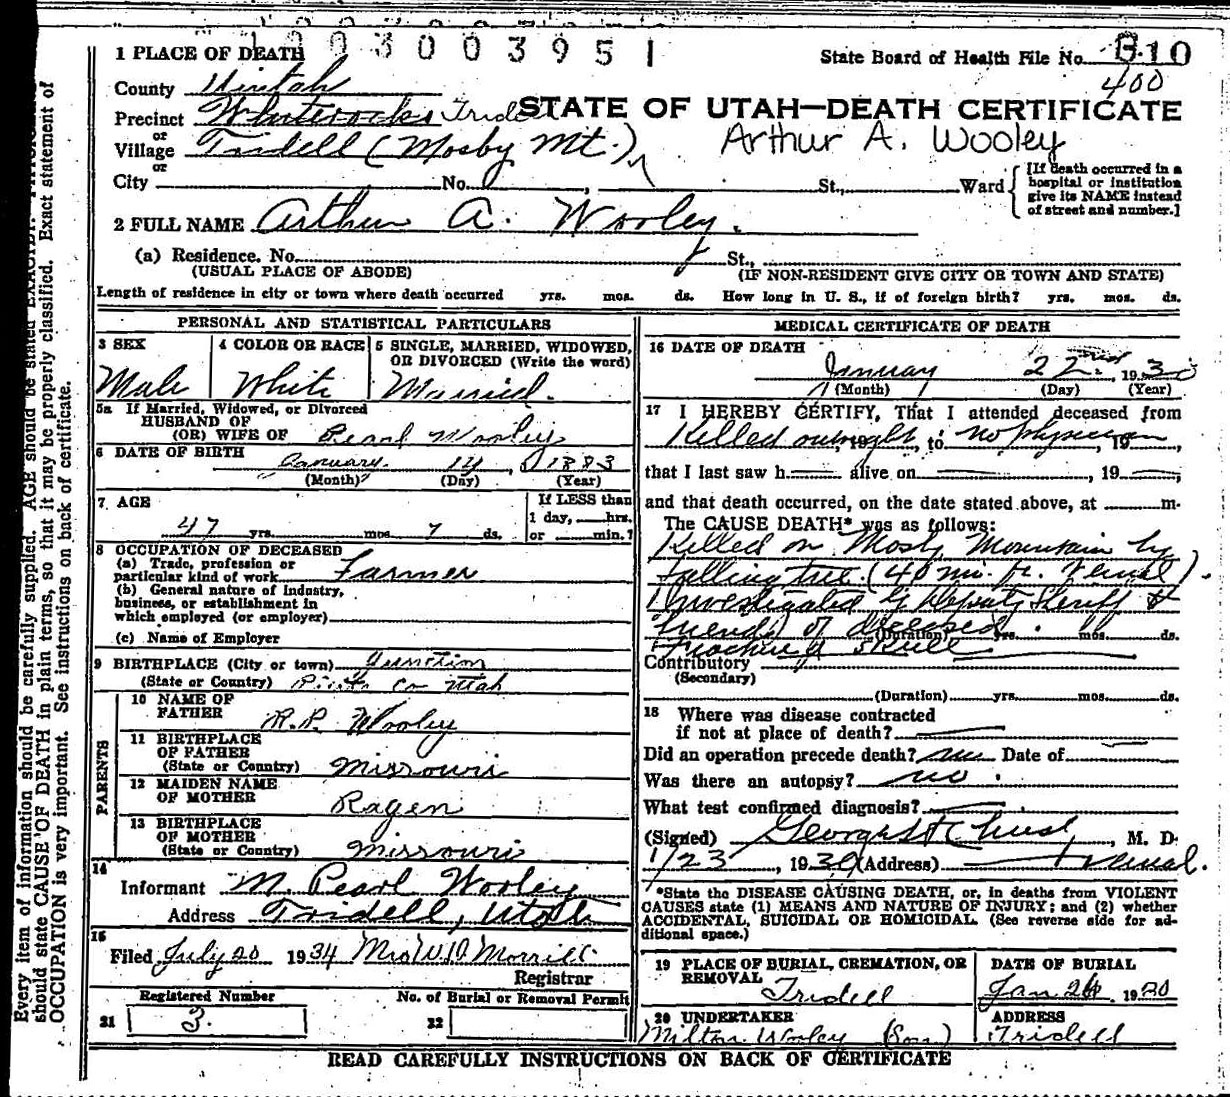 1003003951
1 PLACE OF DEATH
State Board of Health File No. B-10
400
County Uintah
STATE OF UTAH—DEATH CERTIFICATE
Precinct Whiterocks Tridell
or
Village Tridell (Mosby Mt.)
Arthur A. Wooley
or
City No. , St., Ward
[If death occurred in a
hospital or institution
give its NAME instead
of street and number.]
2 FULL NAME Arthur A. Wooley.
(a) Residence. No. St.,
(USUAL PLACE OF ABODE) (IF NON-RESIDENT GIVE CITY OR TOWN AND STATE)
Length of residence in city or town where death occurred yrs. mos. ds. How long in U. S., if of foreign birth? yrs. mos. ds.
PERSONAL AND STATISTICAL PARTICULARS
3 SEX
Male
4 COLOR OR RACE
White
5 SINGLE, MARRIED, WIDOWED,
OR DIVORCED (Write the word)
Married.
5a If Married, Widowed, or Divorced
HUSBAND OF
(OR) WIFE OF Pearl Wooley
6 DATE OF BIRTH January 14, 1883
(Month) (Day) (Year)
7 AGE
47 yrs. mos 7 ds.
If LESS than
1 day, hrs.
or min.?
8 OCCUPATION OF DECEASED
(a) Trade, profession or
particular kind of work Farmer
(b) General nature of Industry,
business, or establishment in
which employed (or employer)
(c) Name of Employer
9 BIRTHPLACE (City or town) Junction
(State or Country) Co Utah
PARENTS
10 NAME OF
FATHER R.P. Wooley
11 BIRTHPLACE
OF FATHER
(State or Country) Missouri
12 MAIDEN NAME
OF MOTHER Ragen
13 BIRTHPLACE
OF MOTHER
(State or Country) Missouri
14
Informant M. Pearl Wooley
Address Tridell, Utah
15
Filed July 20 1934 Mrs W.D. Morrill
Registrar
Registered Number
21 3.
No. of Burial or Removal Permit
22
MEDICAL CERTIFICATE OF DEATH
16 DATE OF DEATH
January 22nd, 1930
(Month) (Day) (Year)
17 I HEREBY CERTIFY, That I attended deceased from
Killed outright, 19 , to no physician, 19
that I last saw h alive on , 19
and that death occurred, on the date stated above, at m.
The CAUSE DEATH* was as follows:
Killed on Mosby Mountain by
falling tree. (40 mi. fr. Vernal).
Investigated by Deputy Sheriff &
friends of deceased.
(Duration) yrs. mos. ds.
Fracture of skull
Contributory
(Secondary)
(Duration) yrs. mos. ds.
18 Where was disease contracted
if not at place of death?
Did an operation precede death? no Date of
Was there an autopsy? no.
What test confirmed diagnosis?
(Signed) George H Christ, M. D.
1/23, 1930 (Address) Vernal.
*State the DISEASE CAUSING DEATH, or, in deaths from VIOLENT
CAUSES state (1) MEANS AND NATURE OF INJURY; and (2) whether
ACCIDENTAL, SUICIDAL OR HOMICIDAL. (See reverse side for ad-
ditional space.)
19 PLACE OF BURIAL, CREMATION, OR
REMOVAL Tridell
DATE OF BURIAL
Jan 26 1930
20 UNDERTAKER
Milton Wooley (Son)
ADDRESS
Tridell
READ CAREFULLY INSTRUCTIONS ON BACK OF CERTIFICATE
Every item of information should be carefully supplied. AGE should be stated EXACTLY.
should state CAUSE OF DEATH in plain terms, so that it may be properly classified. Exact statement of
OCCUPATION is very important. See instructions on back of certificate.